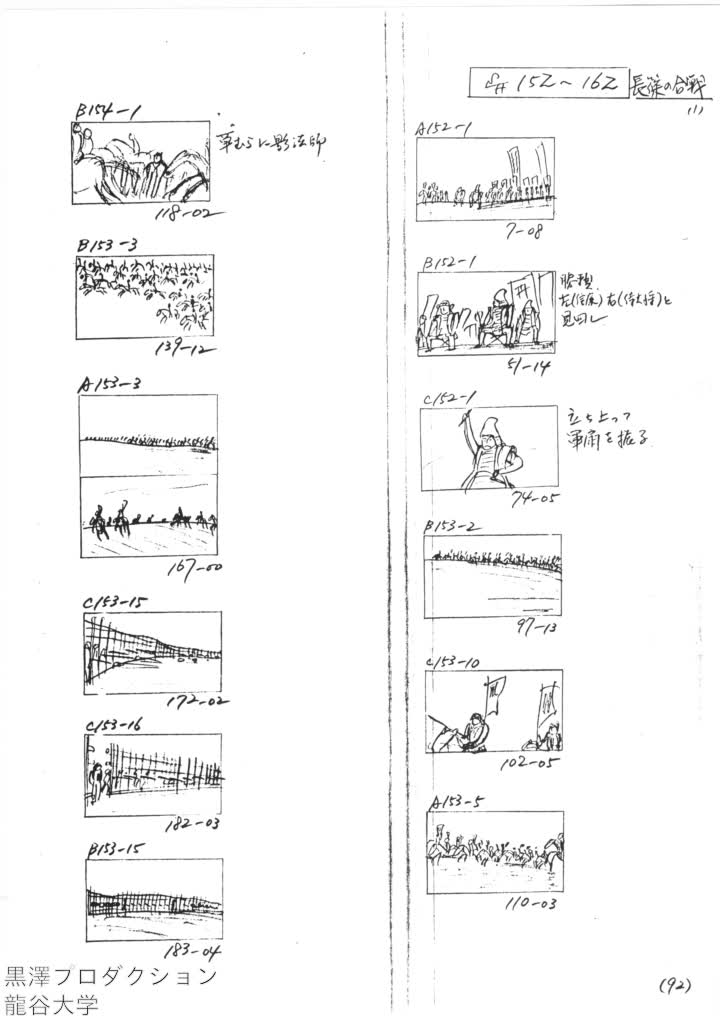 S# 152～162 長篠の合戦
(1)
A152-1
7-08
B152-1
勝頼
左(信廉)右(侍大将)と
見回し
51-14
C152-1
立ち上って
軍扇を振る
74-05
B153-2
97-13
C153-10
102-05
A153-5
110-03
B154-1
草むらに影法師
118-02
B153-3
139-12
A153-3
167-00
C153-15
172-02
C153-16
182-03
B153-15
183-04
(92)
黒澤プロダクション
龍谷大学